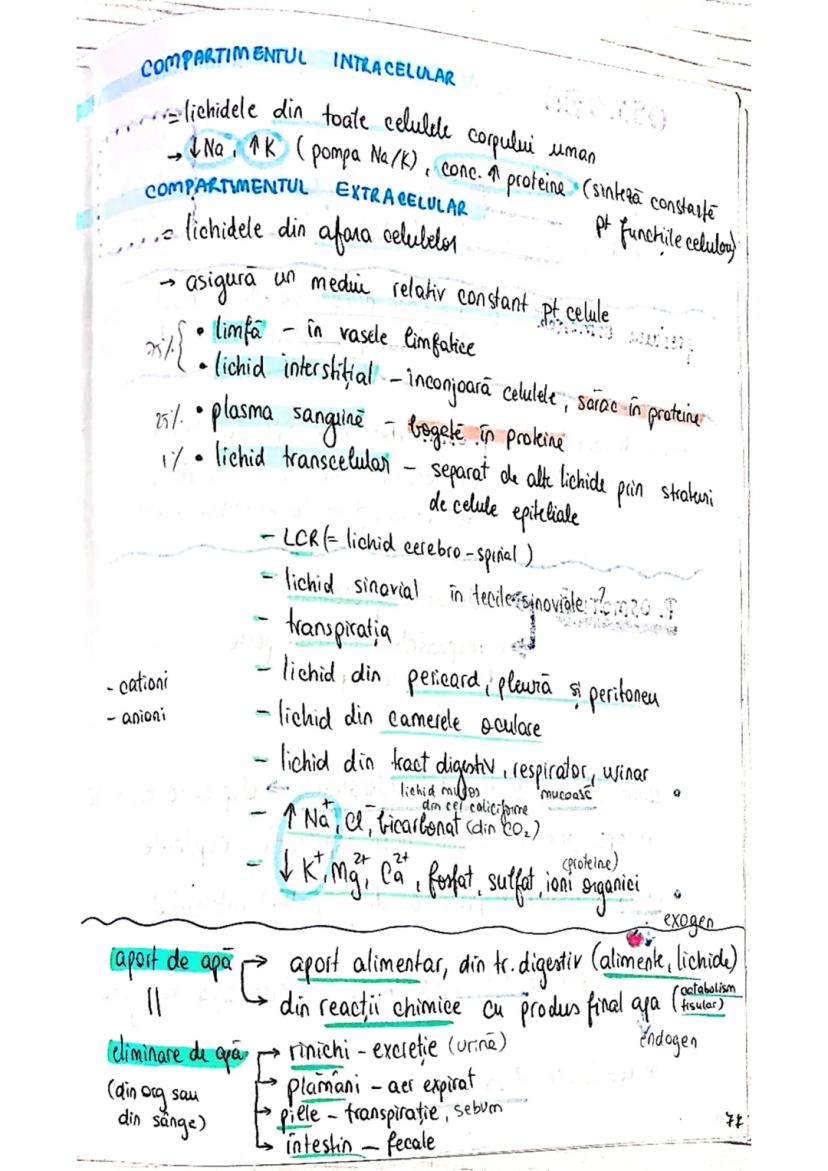 COMPARTIMENTUL INTRACELULAR
= lichidele din toate celulele corpului uman
→ ↓Na, ↑K (pompa Na/K), conc. ↑ proteine (sinteză constantă
pt funcțiile celulou)
COMPARTIMENTUL EXTRACELULAR
= lichidele din afara celulelor
→ asigură un mediu relativ constant pt celule
75% { • limfă – în vasele limfatice
• lichid interstițial – înconjoară celulele, sărac în proteine
25% • plasma sanguină – bogată în proteine
1% • lichid transcelular – separat de alte lichide prin straturi
de celule epiteliale
– LCR (= lichid cerebro-spinal)
– lichid sinovial în tecile sinoviale
– transpirația
– lichid din pericard, pleură și peritoneu
- cationi
- anioni
– lichid din camerele oculare
– lichid din tract digestiv, respirator, urinar
lichid mucos
din cel caliciforme
mucoasă
– ↑ Na⁺, Cl⁻, bicarbonat (din CO₂)
– ↓ K⁺, Mg²⁺, Ca²⁺, fosfat, sulfat, ioni organici
(proteine)
exogen
aport de apă → aport alimentar, din tr. digestiv (alimente, lichide)
|| → din reacții chimice cu produs final apa (catabolism
tisular)
endogen
eliminare de apă → rinichi – excreție (urină)
(din org sau
din sânge)
→ plămâni – aer expirat
→ piele – transpirație, sebum
→ intestin – fecale
77